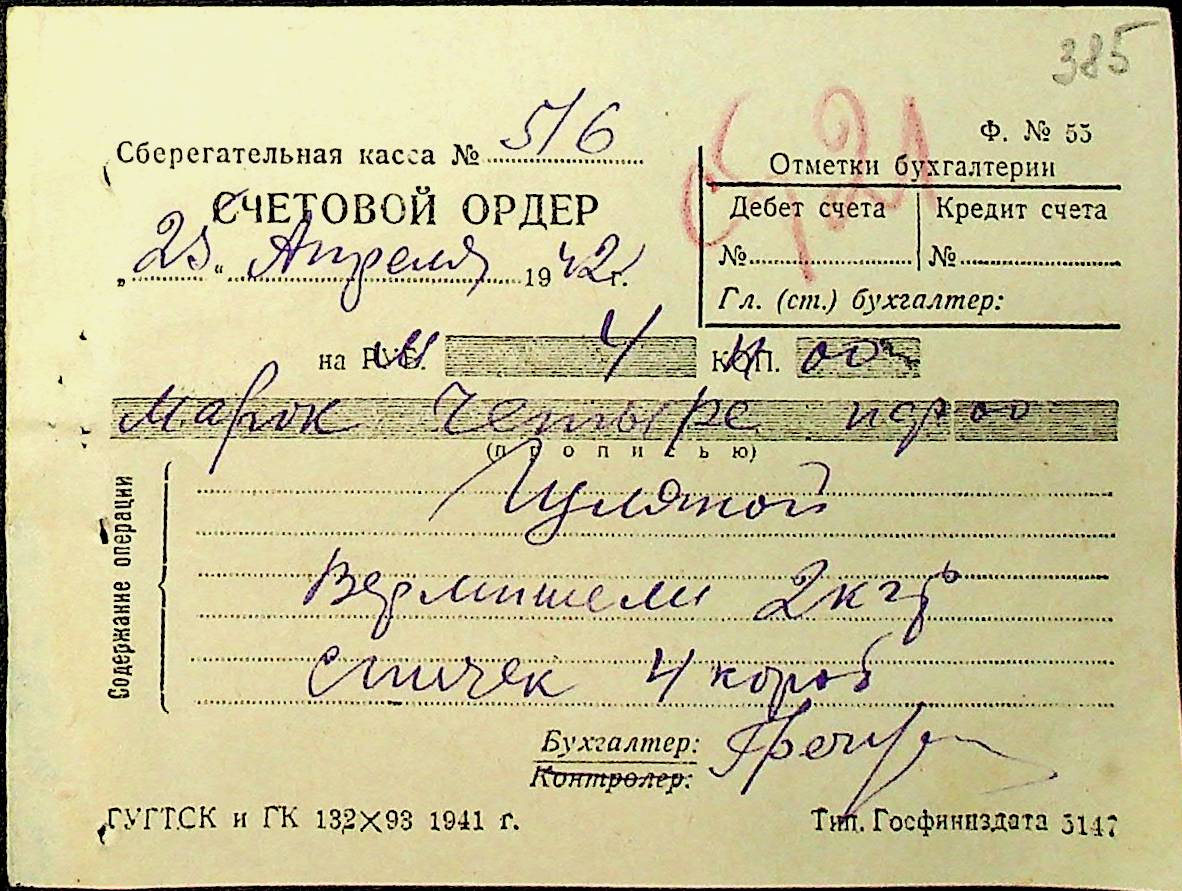 385
Ф. № 55
Сберегательная касса № 516
СЧЕТОВОЙ ОРДЕР
„23“ Апреля 1942 г.
Отметки бухгалтерии
Дебет счета Кредит счета
№ №
Гл. (ст.) бухгалтер:
на РУБ. 4 КОП. 00
Марок Четыре пф 00
(прописью)
Содержание операции
Вермишели 2 кгр
Спичек 4 короб
Бухгалтер:
Контролер:
ГУГТСК и ГК 132X93 1941 г.
Тип. Госфиниздата 5147